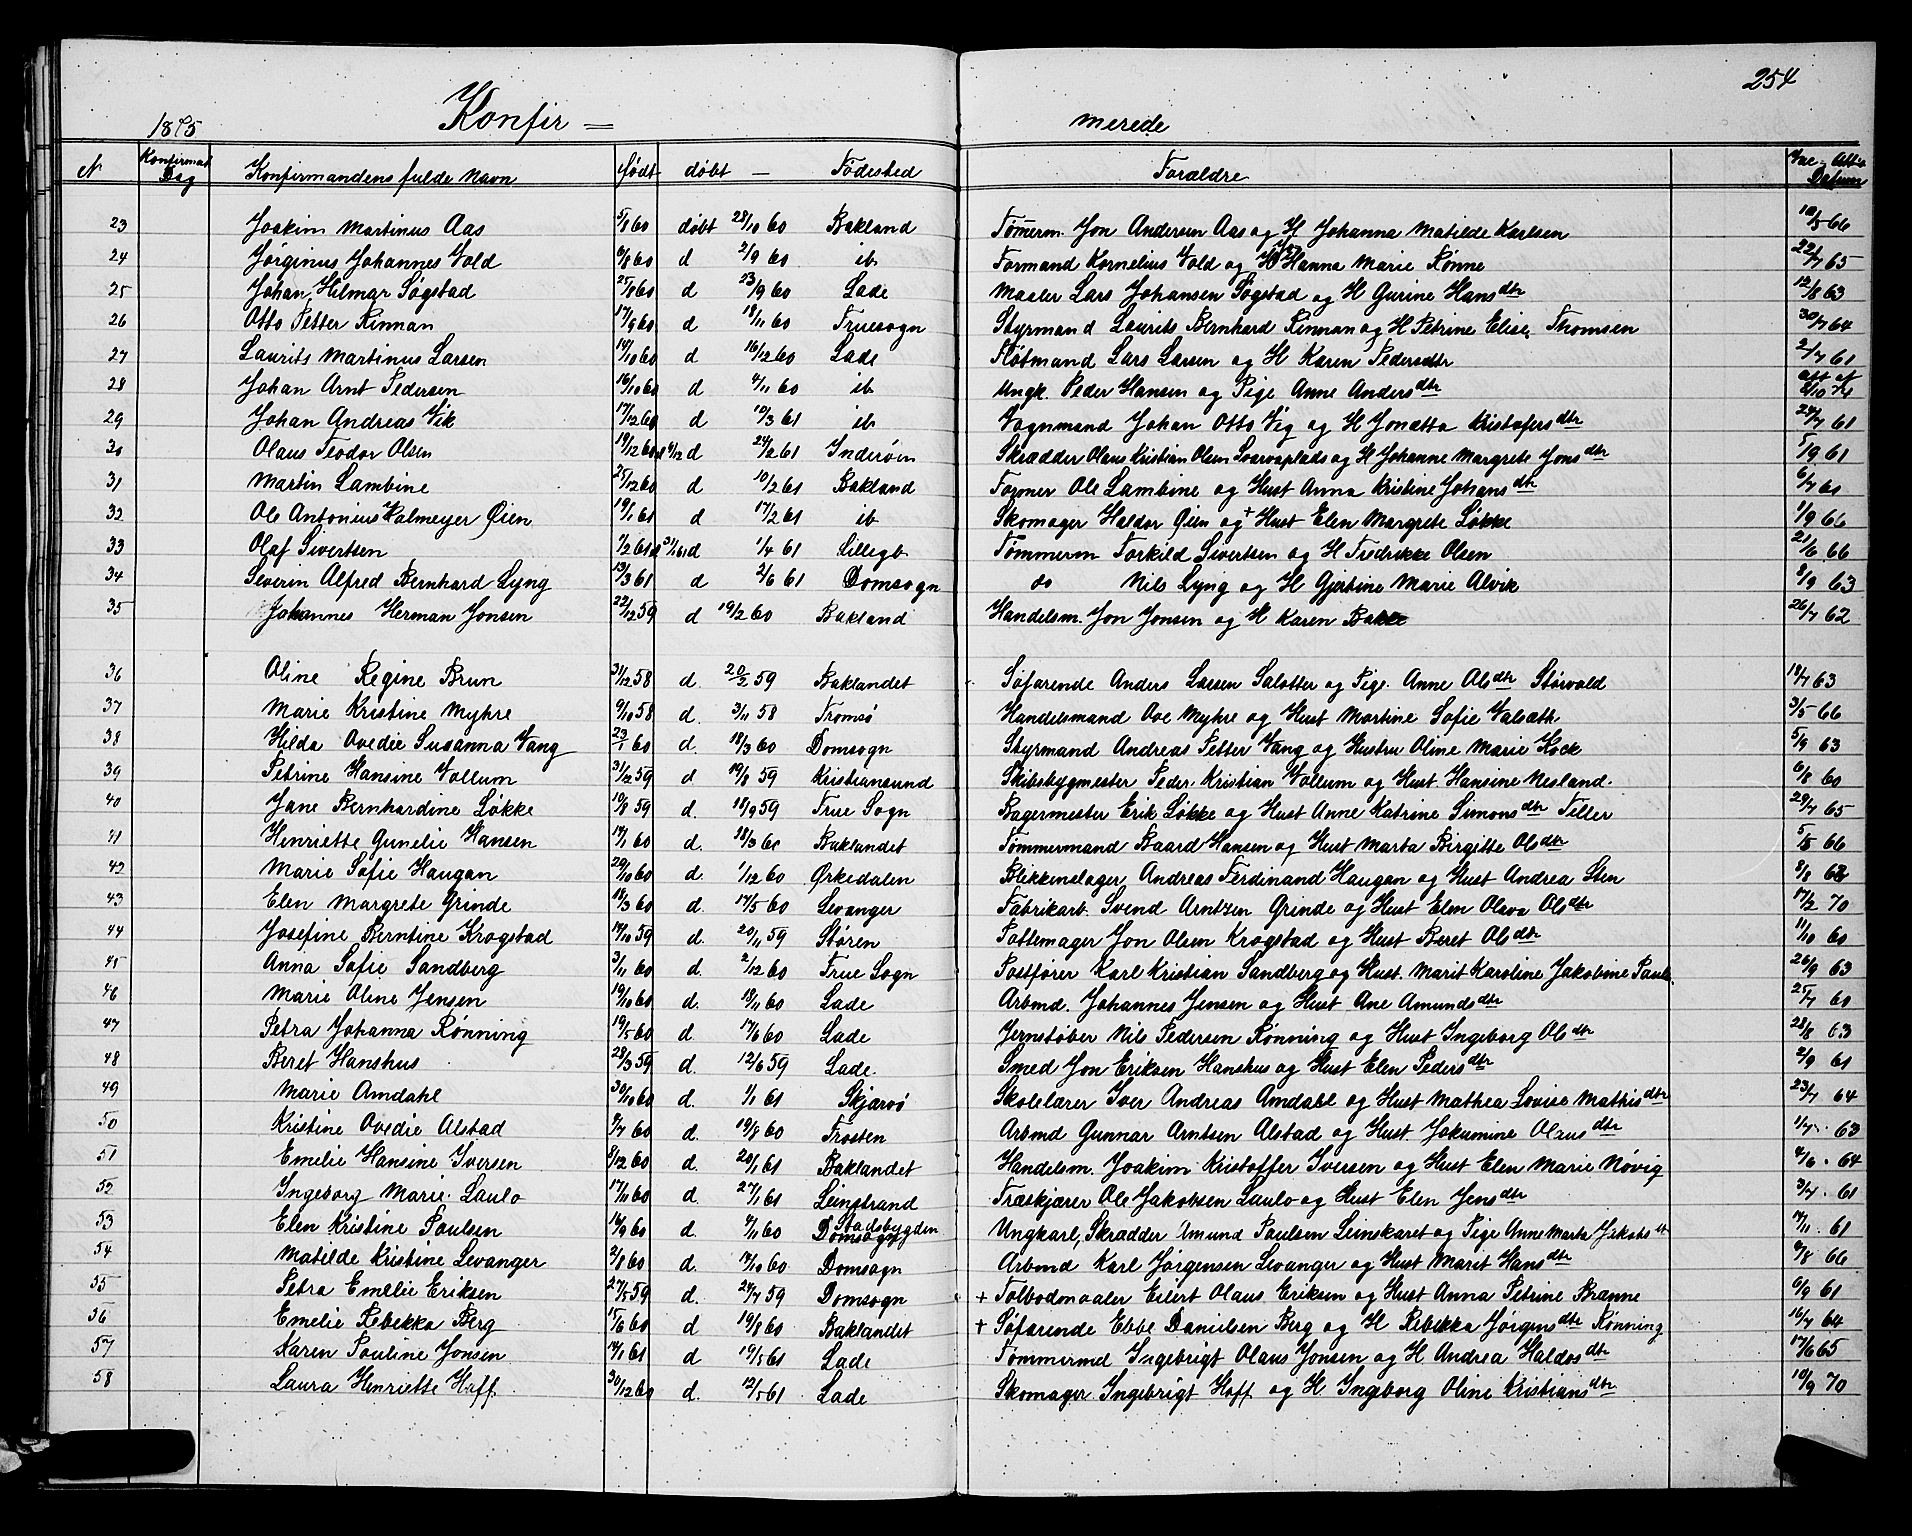 254
Konfir = merede
1875
N Konfirmat. Dag Konfirmandens fulde Navn født døbt — Fødested Forældre Vac. Att. Datum
23 Joakim Martinus Aas 5/8 60 døbt 28/10 60 Bakland Tømerm. Jon Andersen Aas og H Johanna Matilde Karlsen 10/5 66
24 Jørginus Johannes Vold 6/8 60 d 2/9 60 ib Formand Kornelius Vold og H Hanna Marie Rønne 22/7 65
25 Johan Hilmar Søgstad 25/8 60 d 23/9 60 Lade Maaler Lars Johansen Søgstad og H Gurine Hansdtr 12/8 63
26 Otto Petter Rinnan 17/9 60 d 18/11 60 Fruesogn Styrmand Laurits Bernhard Rinnan og H Petrine Elise Thomsen 30/7 64
27 Laurits Martinus Larsen 19/10 60 d 16/12 60 Lade Fløtmand Lars Larsen og H Karen Pedersdtr 2/7 61
28 Johan Arnt Pedersen 16/10 60 d 4/11 60 ib Ungk. Peder Hansen og Pige Anne Andersdtr att af
29 Johan Andreas Vik 17/12 60 d 10/3 61 ib Vognmand Johan Otto Vig og H Jonetta Kristofersdtr 24/7 61
30 Olaus Teodor Olsen 19/12 60 d 24/2 61 Inderøen Skrædder Olaus Kristian Olsen Svarvaplads og H Johanne Margrete Jonsdtr 5/9 61
31 Martin Lambine 25/12 60 d 10/2 61 Bakland Former Ole Lambine og Hust Anna Kristine Johansdtr 6/7 61
32 Ole Antonius Walmeyer Øien 19/1 61 d 17/2 61 ib Skomager Haldor Øien og + Hust Elen Margrete Løkke 1/9 66
33 Olaf Sivertsen 1/2 61 d 1/4 61 Lillegb Tømmerm Torkild Sivertsen og H Fredrikke Olsen 21/6 66
34 Severin Alfred Bernhard Lyng 13/3 61 d 2/6 61 Domsogn do Nils Lyng og H Gjertine Marie Alvik 8/9 63
35 Johannes Herman Jonsen 22/12 59 d 19/2 60 Bakland Handelsm. Jon Jonsen og H Karen Bakke 26/7 62
36 Oline Regine Brun 31/12 58 d. 20/2 59 Baklandet Søfarende Anders Larsen Salotter og Pige. Anne Olsdtr Størvold 19/7 63
37 Marie Kristine Myhre 9/10 58 d. 3/11 58 Tromsø Handelsmand Ove Myhre og Hust Martine Sofie Valsøth 3/5 66
38 Hilda Ovedie Susanna Vang 23/1 60 d. 18/3 60 Domsogn Styrmand Andreas Petter Vang og Hustru Oline Marie Kock 5/9 63
39 Petrine Hansine Vollum 31/12 59 d 19/8 59 Kristiansund Skibsbygmester Peder Kristian Vollum og Hust Hansine Nesland. 6/8 60
40 Jane Bernhardine Løkke 10/8 59 d. 18/9 59 Frue Sogn Bagermester Erik Løkke og Hust Anne Katrine Simonsdtr Tiller 29/7 65
41 Henriette Gunelie Hansen 17/1 60 d. 18/3 60 Baklandet Tømmermand Baard Hansen og Hust Marta Birgitte Olsdtr 5/8 66
42 Marie Sofie Haugan 29/10 60 d. 1/12 60 Ørkedalen Blikkenslager Andreas Ferdinand Haugan og Hust Andrea Sten 8/8 62
43 Elen Margrete Grinde 18/3 60 d. 17/5 60 Levanger Fabrikarb. Svend Arntsen Grinde og Hust Elen Olava Olsdtr 17/2 70
44 Josefine Berntine Krogstad 14/10 59 d. 20/11 59 Støren Pottemager Jon Olsen Krogstad og Hust Beret Olsdtr 11/10 60
45 Anna Sofie Sandberg 3/11 60 d. 2/12 60 Frue Sogn Postfører Karl Kristian Sandberg og Hust. Marit Karoline Jakobine Pauls. 26/9 63
46 Marie Oline Jensen 19/10 60 d. 18/11 60 Lade Arbmd. Johannes Jensen og Hust Ane Amundsdtr 25/7 60
47 Petra Johanna Rønning 19/5 60 d. 17/6 60 Lade Jernstøber Nils Pedersen Rønning og Hust Ingeborg Olsdtr 28/8 63
48 Beret Hanshus 28/3 59 d. 12/6 59 Lade. Smed Jon Eriksen Hanshus og Hust Elen Pedersdtr 2/9 61
49 Marie Amdahl 30/10 60 d. 1/1 61 Skjærvø Skolelærer Iver Andreas Amdahl og Hust Mathea Lovise Mathisdtr 23/7 64
50 Kristine Ovedie Alstad 8/7 60 d. 19/8 60 Frosten Arbmd Gunnar Arntsen Alstad og Hust. Jokumine Olausdtr 1/7. 63
51 Emelie Hansine Iversen 8/12 60 d. 20/1 61 Baklandet Handelsm. Joakim Kristoffer Iversen og Hust Elen Marie Nøvig 4/6. 64
52 Ingeborg Marie Laulo 17/11 60 d. 27/1 61 Leinstrand Træskjærer Ole Jakobsen Laulo og Hust Elen Jensdtr 3/7. 61
53 Elen Kristine Paulsen 16/9 60 d. 4/11 60 Stadsbygden Domsogn Ungkarl, Skrædder Amund Paulsen Leinskaret og Pige Anne Marta Jakobsdt 17/11. 61
54 Matilde Kristine Levanger 2/8 60 d. 14/10 60 Domsogn Arbmd Karl Jørgensen Levanger og Hust Marit Hansdtr 9/8 66
55 Petra Emelie Eriksen 27/5 59 d. 24/7 59 Domsogn + Tolbodmaaler Eilert Olaus Eriksen og Hust Anna Petrine Brænne 6/9 61
56 Emelie Rebekka Berg 15/6 60 d 19/8 60 Baklandet + Søfarende Ebbe Danielsen Berg og H Rebekka Jørgensdtr Rønning 16/7 64
57 Karen Pauline Jonsen 14/1 61 d 19/5 61 Lade Tømmermd Ingebrigt Olaus Jonsen og H Andrea Haldosdtr 17/6 65
58 Laura Henriette Hoff 30/12 60 d. 12/5 61 Lade Skomager Ingebrigt Hoff og H Ingeborg Oline Kristiansdtr 10/9 70